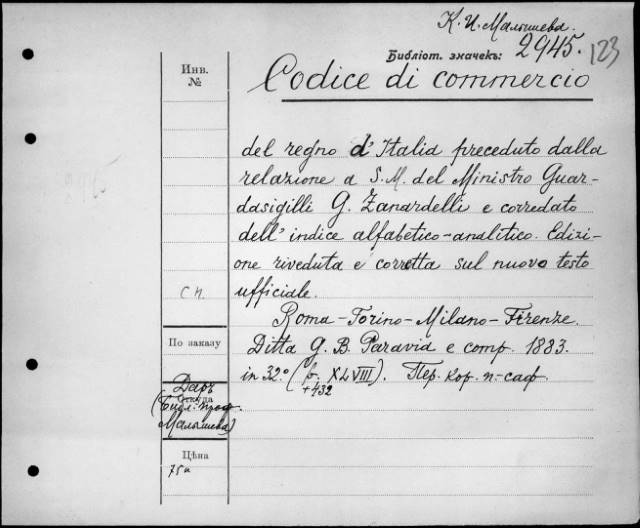 К. И. Малышева.
Библіот. значекъ: 2945. 123
Инв.
№
Codice di commercio
del regno d'Italia preceduto dalla
relazione a S. M. del Ministro Guar-
dasigilli G. Zanardelli e corredato
dell' indice alfabetico-analitico. Edizi-
one riveduta e corretta sul nuovo testo
ufficiale.
Сп.
Roma-Torino-Milano-Firenze.
По заказу
Ditta G. B. Paravia e comp. 1883.
in 32º (b. XLVIII). Пер. кор. п.-саф
+432
Даръ
Откуда
(Библ. проф.
Малышева)
Цѣна